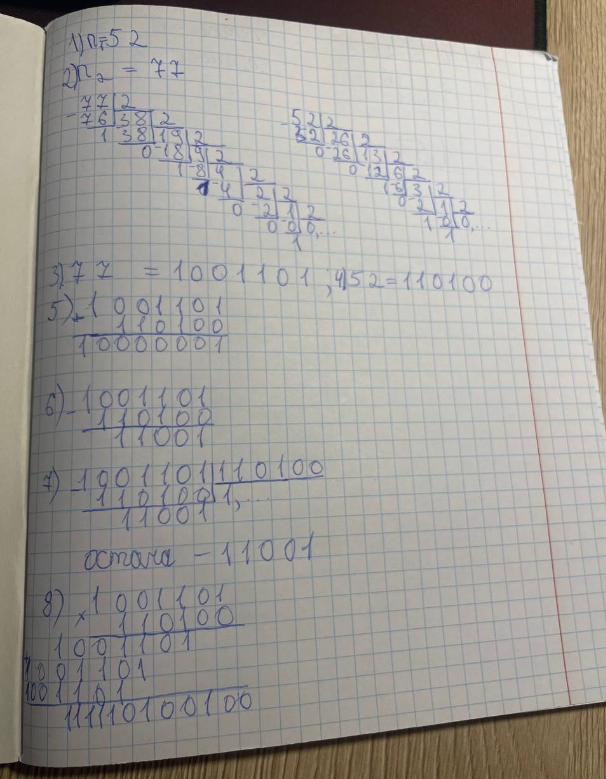 1) n₁=52
2) n₂ = 77
-77|2 -52|2
76|38|2 52|26|2
1 38|19|2 0 -26|13|2
0 -18|9|2 0 12|6|2
1 -8|4|2 1 -6|3|2
1 -4|2|2 0 -2|1|2
0 -2|1|2 1 0|0,...
0 0|0,... 1
1
3) 77 = 1001101 ; 4) 52 = 110100
5) +1001101
110100
10000001
6) -1001101
110100
11001
7) -1001101|110100
110100|1,...
11001
остача - 11001
8) ×1001101
110100
1001101
1001101
1001101
111110100100